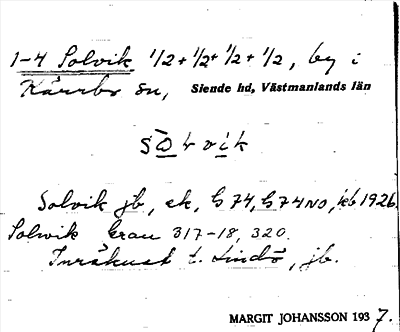 1-4 Solvik 1/2 + 1/2 + 1/2 + 1/2, by i
Kärrbo sn, Siende hd, Västmanlands län
sɷ̄lvik
Solvik jb, ek, G 74, G 74 NO, kb 1926.
Solwik Grau 317-18, 320.
Inräknat t. Lindö, jb.
MARGIT JOHANSSON 1937.